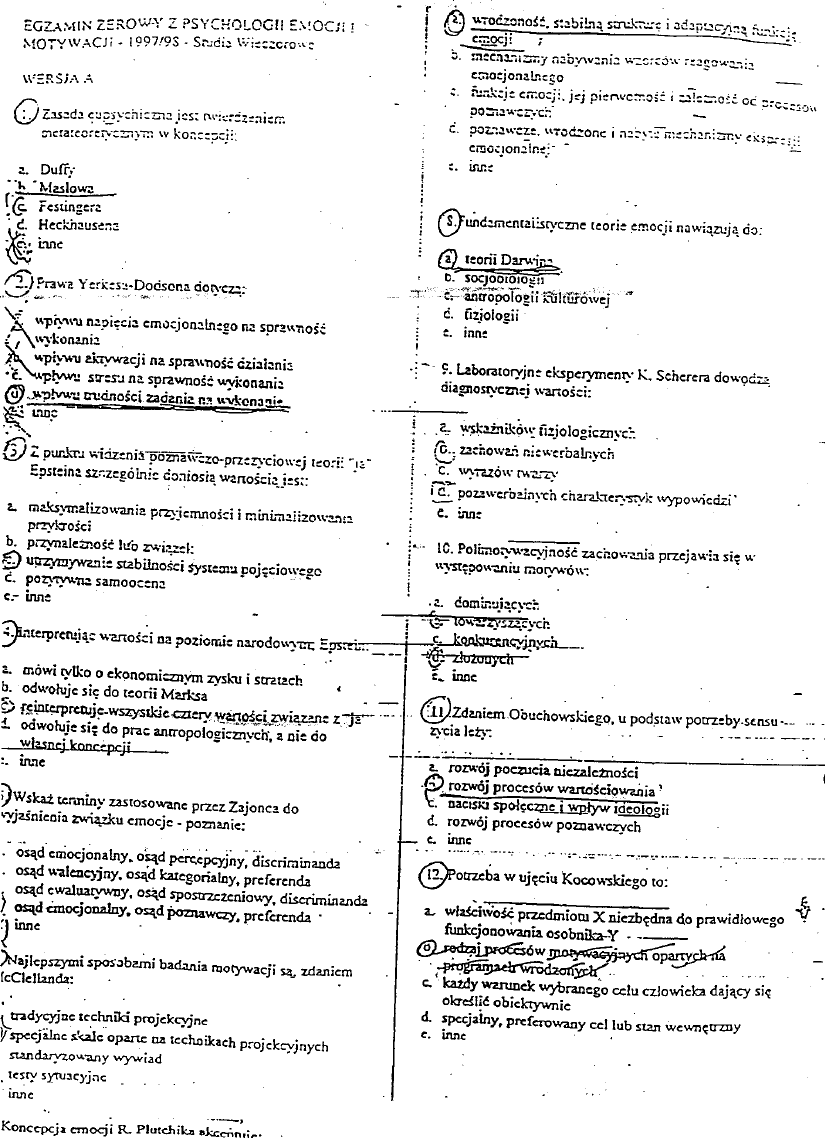 EGZAMIN ZEROWY Z PSYCHOLOGII EMOCJI I
MOTYWACJI - 1997/98 - Studia Wieczorowe
WERSJA A
1. Zasada eupsychiczna jest twierdzeniem
metateoretycznym w koncepcji:
a. Duffy
b. Maslowa
c. Festingera
d. Heckhausena
e. inne
2. Prawa Yerkesa-Dodsona dotyczą:
wpływu napięcia emocjonalnego na sprawność
wykonania
wpływu aktywacji na sprawność działania
c. wpływu stresu na sprawność wykonania
d. wpływu trudności zadania na wykonanie
inne
3. Z punktu widzenia poznawczo-przeżyciowej teorii "ja"
Epsteina szczególnie doniosłą wartością jest:
a. maksymalizowania przyjemności i minimalizowania
przykrości
b. przynależność lub związek
c. utrzymywanie stabilności systemu pojęciowego
d. pozytywna samoocena
e. inne
4. Interpretując wartości na poziomie narodowym, Epstein:
a. mówi tylko o ekonomicznym zysku i stratach
b. odwołuje się do teorii Marksa
c. reinterpretuje wszystkie cztery wartości związane z "ja"
d. odwołuje się do prac antropologicznych, a nie do
własnej koncepcji
inne
Wskaż terminy zastosowane przez Zajonca do
wyjaśnienia związku emocje - poznanie:
osąd emocjonalny, osąd percepcyjny, discriminanda
osąd walencyjny, osąd kategorialny, preferenda
osąd ewaluatywny, osąd spostrzeżeniowy, discriminanda
osąd emocjonalny, osąd poznawczy, preferenda
inne
Najlepszymi sposobami badania motywacji są, zdaniem
McClellanda:
tradycyjne techniki projekcyjne
specjalne skale oparte na technikach projekcyjnych
standaryzowany wywiad
testy sytuacyjne
inne
Koncepcja emocji R. Plutchika akcentuje:
a. wrodzoność, stabilną strukturę i adaptacyjną funkcję
emocji
b. mechanizmy nabywania wzorców reagowania
emocjonalnego
c. funkcje emocji, jej pierwotność i zależność od procesów
poznawczych
d. poznawcze, wrodzone i nabyte mechanizmy ekspresji
emocjonalnej
e. inne
8. Fundamentalistyczne teorie emocji nawiązują do:
a. teorii Darwina
b. socjobiologii
c. antropologii kulturowej
d. fizjologii
e. inne
9. Laboratoryjne eksperymenty K. Scherera dowodzą
diagnostycznej wartości:
a. wskaźników fizjologicznych
b. zachowań niewerbalnych
c. wyrazów twarzy
d. pozawerbalnych charakterystyk wypowiedzi
e. inne
10. Polimotywacyjność zachowania przejawia się w
występowaniu motywów:
a. dominujących
b. towarzyszących
c. konkurencyjnych
d. złożonych
e. inne
11. Zdaniem Obuchowskiego, u podstaw potrzeby sensu
życia leży:
a. rozwój poczucia niezależności
b. rozwój procesów wartościowania
c. naciski społeczne i wpływ ideologii
d. rozwój procesów poznawczych
e. inne
12. Potrzeba w ujęciu Kocowskiego to:
a. właściwość przedmiotu X niezbędna do prawidłowego
funkcjonowania osobnika Y
b. rodzaj procesów motywacyjnych opartych na
programach wrodzonych
c. każdy warunek wybranego celu człowieka dający się
określić obiektywnie
d. specjalny, preferowany cel lub stan wewnętrzny
e. inne